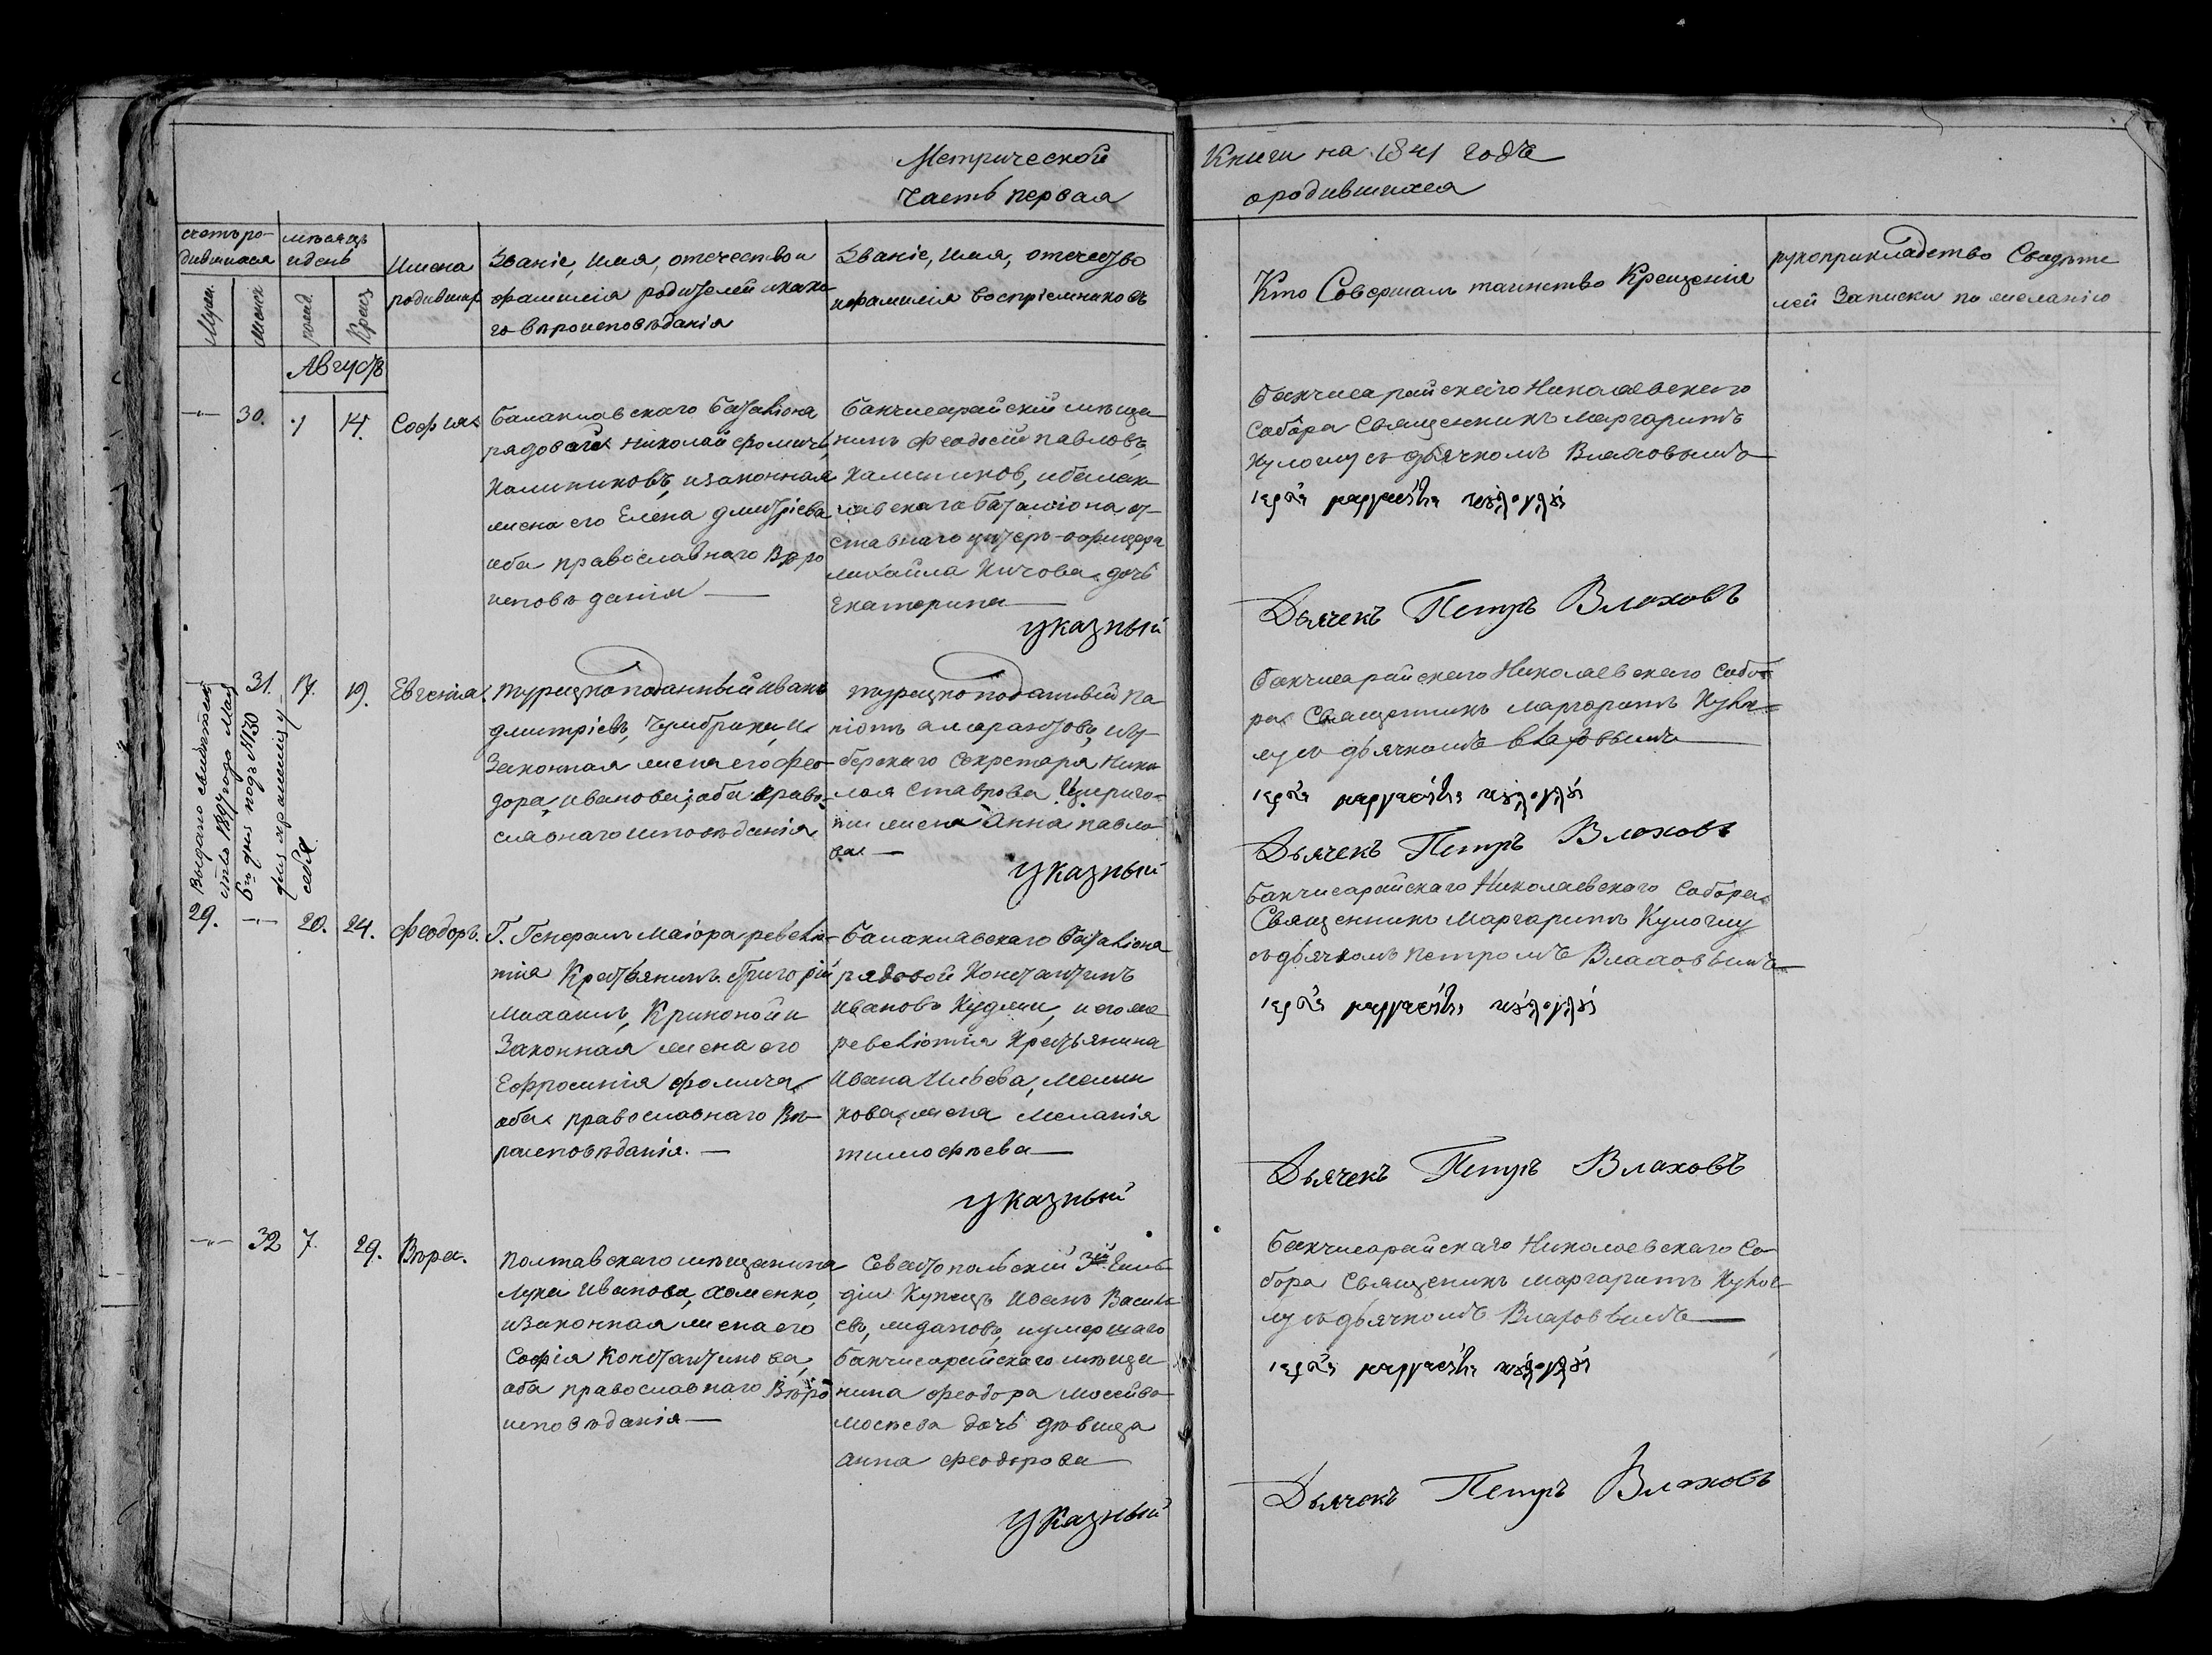 Метрической
Часть первая
Книги на 1841 годъ
ородившихся
счетъ ро-
дившихся
мѣсяцъ
идень
Мужеск.
Женск
рожд.
Крещ
Имена
родивших
Званіе, имя, отечество и
фамилія родителей икако
го вѣроисповѣданія
Званіе, имя, отечество
ифамилія воспріемниковъ
Кто Совершалъ таинство Крещенія
рукоприкладство Свидѣте
лей Записки по желанію
Августъ
30.
1
14.
Софія
Балаклавскаго Баталіона
рядовой Николай Фомичъ
Калиниковъ, изаконная
жена его Елена Дмитріева
оба православнаго Вѣро
исповѣданія
Бахчисарайскій мѣща-
нинъ Феодосій павловъ
Калиников, ибалак-
лавскаго баталіона от-
ставнаго унтеръ-офицера
михаила Кичова дочь
Екатерина
указный
Бахчисарайскаго Николаевскаго
Собора Священникъ Маргаритъ
Кулоглу съ дьячкомъ Влаховымъ
Дьячекъ Петръ Влаховъ
31.
17.
19.
Евгенія.
турецкоподанный иванъ
дмитріевъ, и
Законная жена его Фео-
дора, иванова, оба право-
славнаго исповѣданія
турецкоподанный Па-
ніотъ амарантовъ, игу-
бернскаго Секретаря Нико-
лая Ставрова
жена Анна павло-
ва
указный
Бахчисарайскаго Николаевскаго Собо-
ра Священникъ Маргаритъ Куло-
глу съ дьячкомъ Влаховымъ
Дьячекъ Петръ Влаховъ
Выдано свидѣтель
ство 1897 года Мая
6го дня подъ №130
29.
20.
24.
Феодоръ.
Г. Генералъ Маіора ревеліо-
тія Крестьянинъ Григорій
Михаилъ, Криконой и
Законная жена его
Ефросинія фомича
оба православнаго Вѣ-
роисповѣданія.
Балаклавскаго баталіона
рядовой Константинъ
ивановъ Куджи, и
ревеліотія Крестьянина
Ивана Ильева, Мельни
кова, жена Меланія
тимофѣева
указный
Бахчисарайскаго Николаевскаго Собора
Священникъ Маргаритъ Кулоглу
съ дьячкомъ петромъ Влаховымъ
Дьячекъ Петръ Влаховъ
32
7.
29.
Вѣра.
полтавскаго мѣщанина
Луки Иванова, Хоменко,
изаконная жена его
Софія Константинова,
оба православнаго Вѣро
исповѣданія
Севастопольскій 3й Гиль-
діи Купецъ Иванъ Василь-
евъ, умершаго
Бахчисарайскаго мѣща
нина Феодора
дочь дѣвица
Анна Феодорова
указный
Бахчисарайскаго Николаевскаго Со-
бора Священикъ Маргаритъ Куло-
глу съ дьячкомъ Влаховымъ
Дьячекъ Петръ Влаховъ